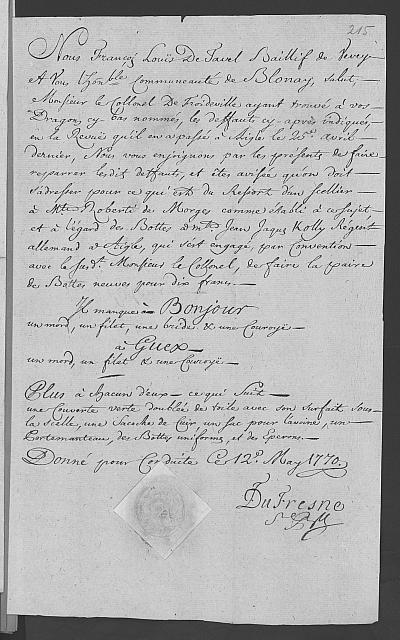 215
Nous François Louïs De Tavel Baillif de Vevey
A Vous l'honble Communauté de Blonay, Salut,
Monsieur le Collonel De Froideville ayant trouvé à vos
Dragons cy-bas nommés, les deffauts cy-après indiqués,
en la Revuë qu'il en a passé à Aigle le 25e avril
dernier, Nous vous enjoignons par les présents de faire
resparrer les dit deffauts, et êtes avisés qu'on doit
s'adresser pour ce qui est du Ressort d'un Scellier
à Mtre Roberté de Morges comme établi à ce sujet
et à l'égard des Bottes à Mtre Jean Jaques Kolly Régent
allemand à Aigle, qui s'est engagé, par Convention
avec le susdt Monsieur le Collonel, de faire la paire
de Bottes neuves pour dix francs.
Il manque à Bonjour
un mord, un filet, une bride & une Couroye
à Guex
un mord, un filet & une Couroye
Plus à chacun d'eux ce qui Suit
une Couverte verte doublée de toile avec son surfait sous
la Scelle, une Sacoche de Cuir, un Sac pour l'avoine, un
Portemanteau, des Bottes uniforms, et des Eperons.
Donné pour Conduite Ce 12e May 1770.
DuFresne